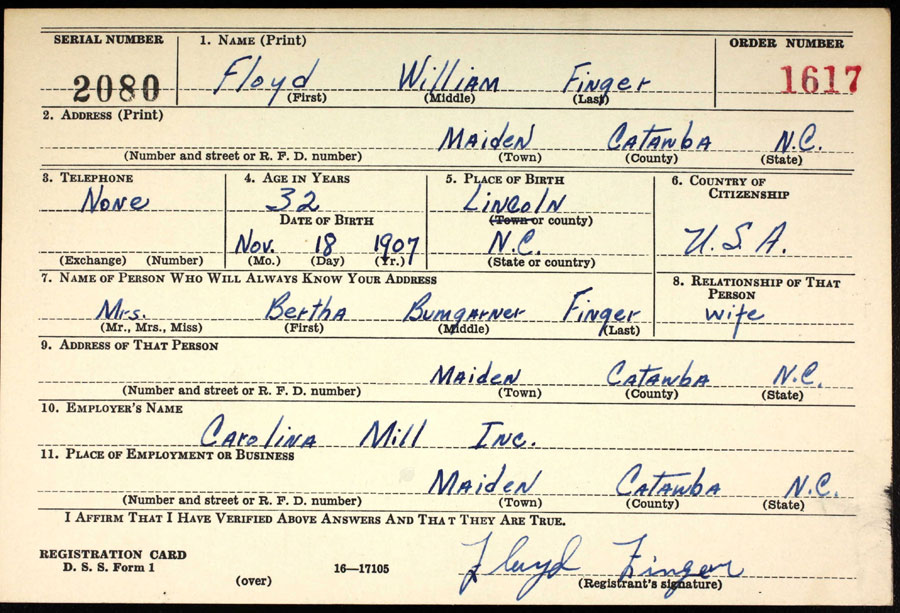 SERIAL NUMBER 1. NAME (Print) ORDER NUMBER
2080 Floyd William Finger 1617
(First) (Middle) (Last)
2. ADDRESS (Print)
Maiden Catawba N.C.
(Number and street or R. F. D. number) (Town) (County) (State)
3. TELEPHONE 4. AGE IN YEARS 5. PLACE OF BIRTH 6. COUNTRY OF CITIZENSHIP
None 32 Lincoln
DATE OF BIRTH (Town or county)
Nov. 18 1907 N.C. U.S.A.
(Exchange) (Number) (Mo.) (Day) (Yr.) (State or country)
7. NAME OF PERSON WHO WILL ALWAYS KNOW YOUR ADDRESS 8. RELATIONSHIP OF THAT PERSON
Mrs. Bertha Bumgarner Finger wife
(Mr., Mrs., Miss) (First) (Middle) (Last)
9. ADDRESS OF THAT PERSON
Maiden Catawba N.C.
(Number and street or R. F. D. number) (Town) (County) (State)
10. EMPLOYER'S NAME
Carolina Mill Inc.
11. PLACE OF EMPLOYMENT OR BUSINESS
Maiden Catawba N.C.
(Number and street or R. F. D. number) (Town) (County) (State)
I AFFIRM THAT I HAVE VERIFIED ABOVE ANSWERS AND THAT THEY ARE TRUE.
REGISTRATION CARD
D. S. S. Form 1 16—17105 Floyd Finger
(over) (Registrant's signature)